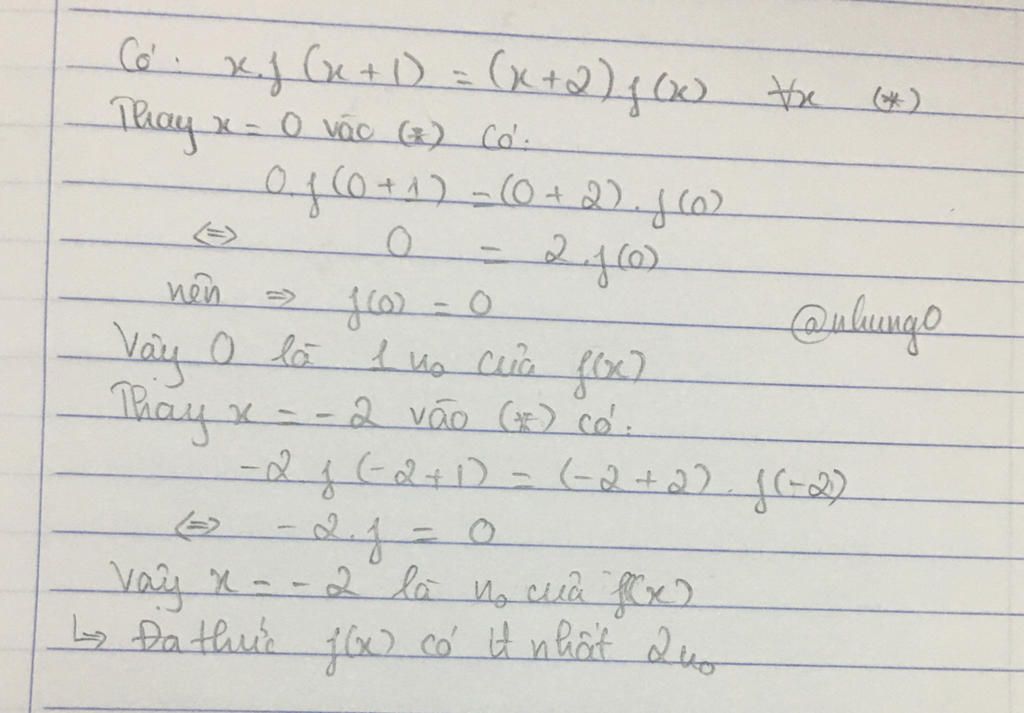 Có: x.f(x+1) = (x+2) f(x) ∀x (*)
Thay x = 0 vào (*) có:
0.f(0+1) = (0+2).f(0)
<=> 0 = 2.f(0)
nên => f(0) = 0
@nhung0
Vậy 0 là 1 n₀ của f(x)
Thay x = -2 vào (*) có:
-2.f(-2+1) = (-2+2).f(-2)
<=> -2.f = 0
Vậy x = -2 là n₀ của f(x)
↳ Đa thức f(x) có ít nhất 2 n₀